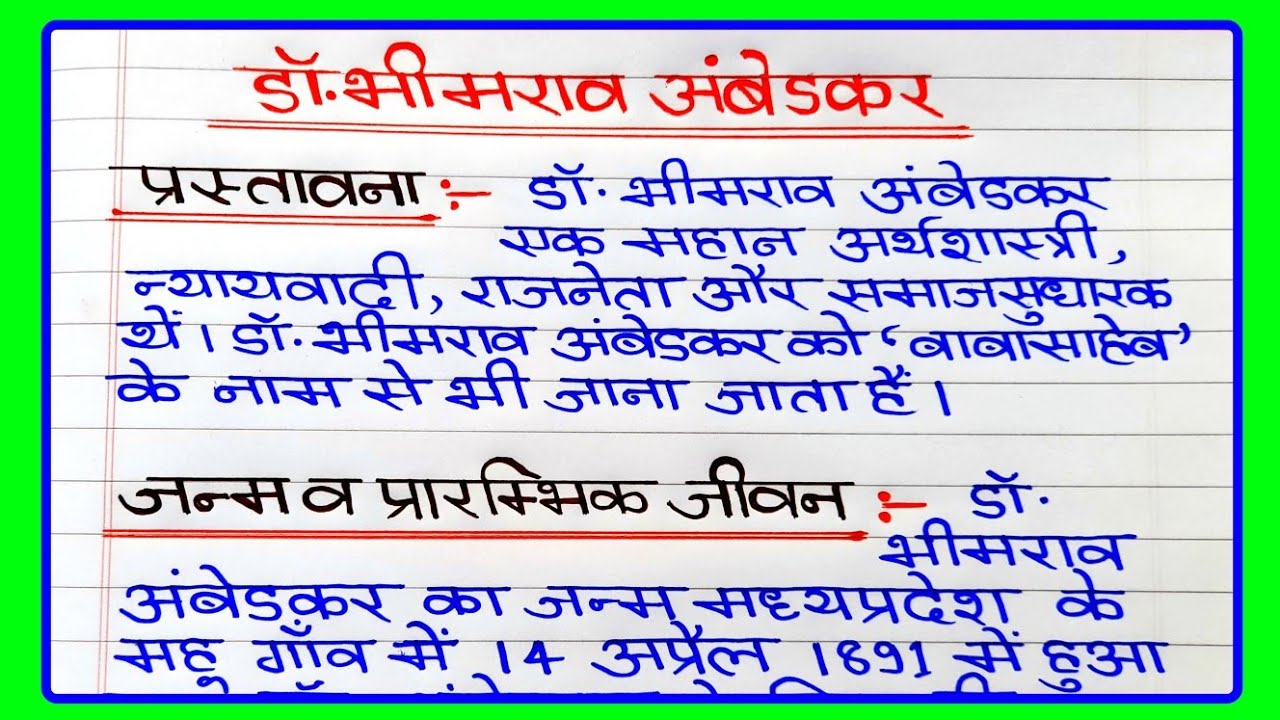 डॉ. भीमराव अंबेडकर
प्रस्तावना :- डॉ. भीमराव अंबेडकर
एक महान अर्थशास्त्री,
न्यायवादी, राजनेता और समाजसुधारक
थें। डॉ. भीमराव अंबेडकर को ‘बाबासाहेब’
के नाम से भी जाना जाता हैं।
जन्म व प्रारम्भिक जीवन :- डॉ.
भीमराव
अंबेडकर का जन्म मध्यप्रदेश के
महू गाँव में 14 अप्रैल 1891 में हुआ